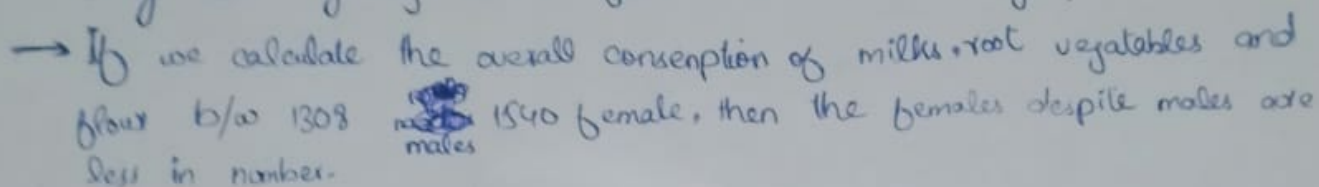 → If we calculate the overall consenption of milks, root vegatables and
flour b/w 1308 males 1540 female, then the females despite males are
less in number.